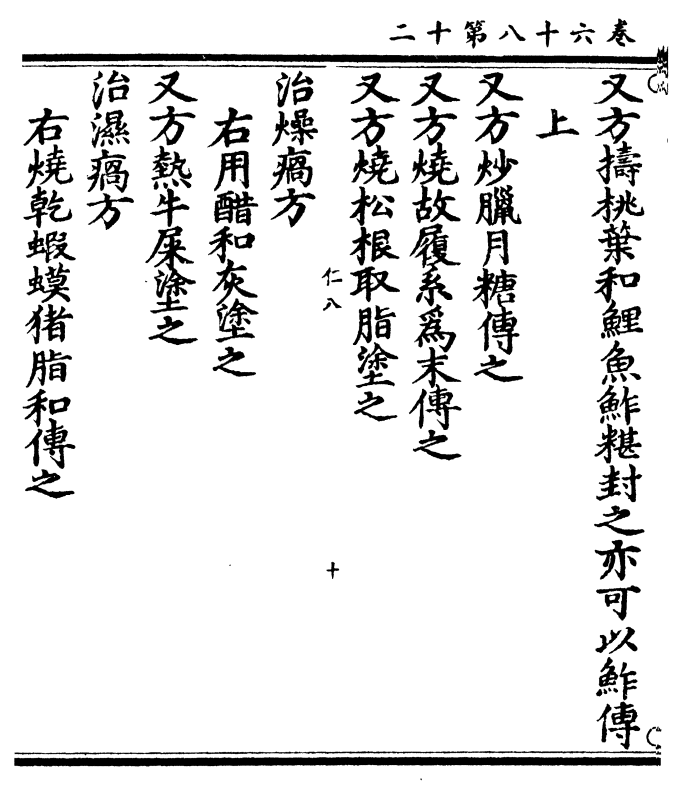 卷六十八第十二
又方擣桃葉和鯉魚鮓糂封之亦可以鮓傅
上
又方炒臘月糖傅之
又方燒故履系爲末傅之
又方燒松根取脂塗之
仁八
十
治燥瘑方
右用醋和灰塗之
又方熱牛屎塗之
治濕瘑方
右燒乾蝦蟆猪脂和傅之